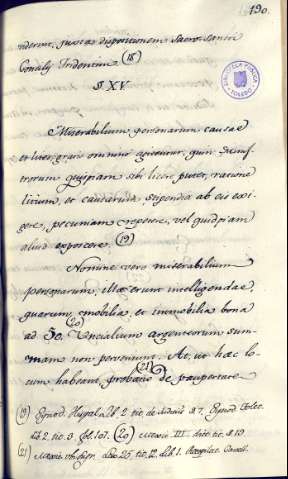 190.
BIBLIOTECA PUBLICA
TOLEDO
viderint, juxta dispositionem Sacro-Sancti
Concilij Tridentini. (18)
§. XV.
Miserabilium personarum causae
et lites, gratis omnino agentur, quin
quispiam sibi licere putet, ratione
litium, et causarum stipendia ab eis exi-
gere, pecuniam repetere, vel quidpiam
aliud exposcere. (19)
Nomine vero miserabilium
personarum, illae erunt intelligendae,
quarum, mobilia, et immobilia bona
ad 50. (20) Uncialium argenteorum sum-
mam non perveniunt. At, ut haec lo-
cum habeant, probatio (21) de paupertate
(19) Synod. Hispal. lib. 2. tit. de § 7. Synod. Tolet.
lib. 2. tit. 3. fol. 107. (20) III. tit. § 19.
(21) 25. tit. 12. lib. 1. Recopilat.